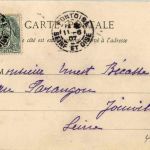 CARTE POSTALE
Ce côté est exclusivement réservé à l'adresse
PONTOISE
11-6
07
SEINE ET OISE
Monsieur Ernest Bécasse
Parangon
Joinville
Seine